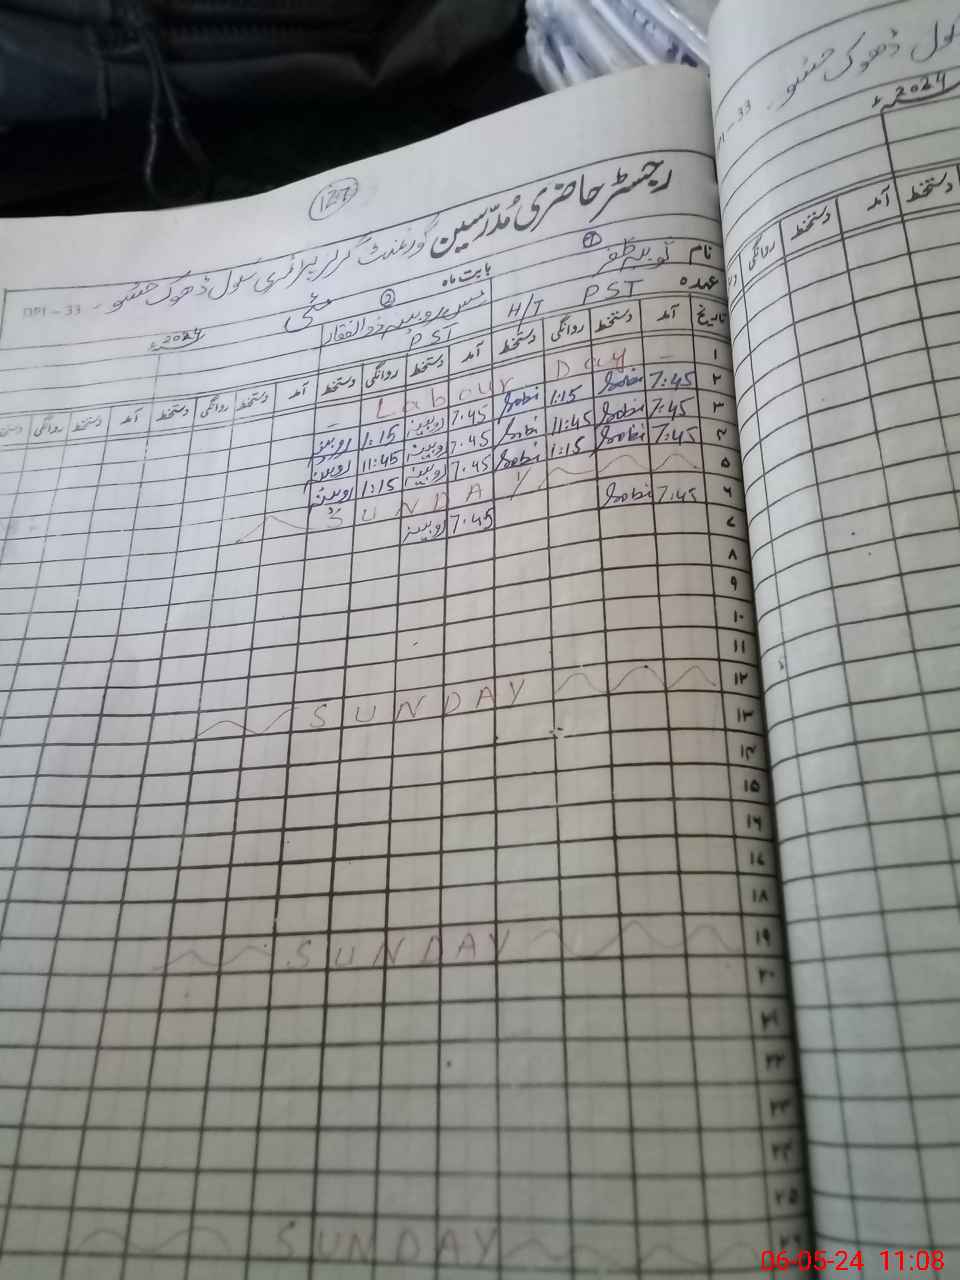 127
رجسٹر حاضری مُدرّسین گورنمنٹ گرلز پرائمری سکول ڈھوک
DPI-33
بابت ماہ مئی 2024ء
نام ① ثوبیہ ظفر
② مس روبینہ ذوالفقار
عہدہ PST H/T
PST
تاریخ آمد دستخط روانگی دستخط آمد دستخط روانگی دستخط آمد دستخط روانگی دستخط آمد دستخط روانگی
۱ Labour Day
۲ 7:45 Sobi 1:15 Sobi 7:45 روبینہ 1:15 روبینہ
۳ 7:45 Sobi 11:45 Sobi 7:45 روبینہ 11:45 روبینہ
۴ 7:45 Sobi 1:15 Sobi 7:45 روبینہ 1:15 روبینہ
۵ SUNDAY
۶ 7:45 Sobi 7:45 روبینہ
۷
۸
۹
۱۰
۱۱
۱۲ SUNDAY
۱۳
۱۴
۱۵
۱۶
۱۷
۱۸
۱۹ SUNDAY
۲۰
۲۱
۲۲
۲۳
۲۴
۲۵
۲۶ SUNDAY
سکول ڈھوک
DPI-33
2024ء
آمد دستخط
روانگی دستخط
06-05-24 11:08